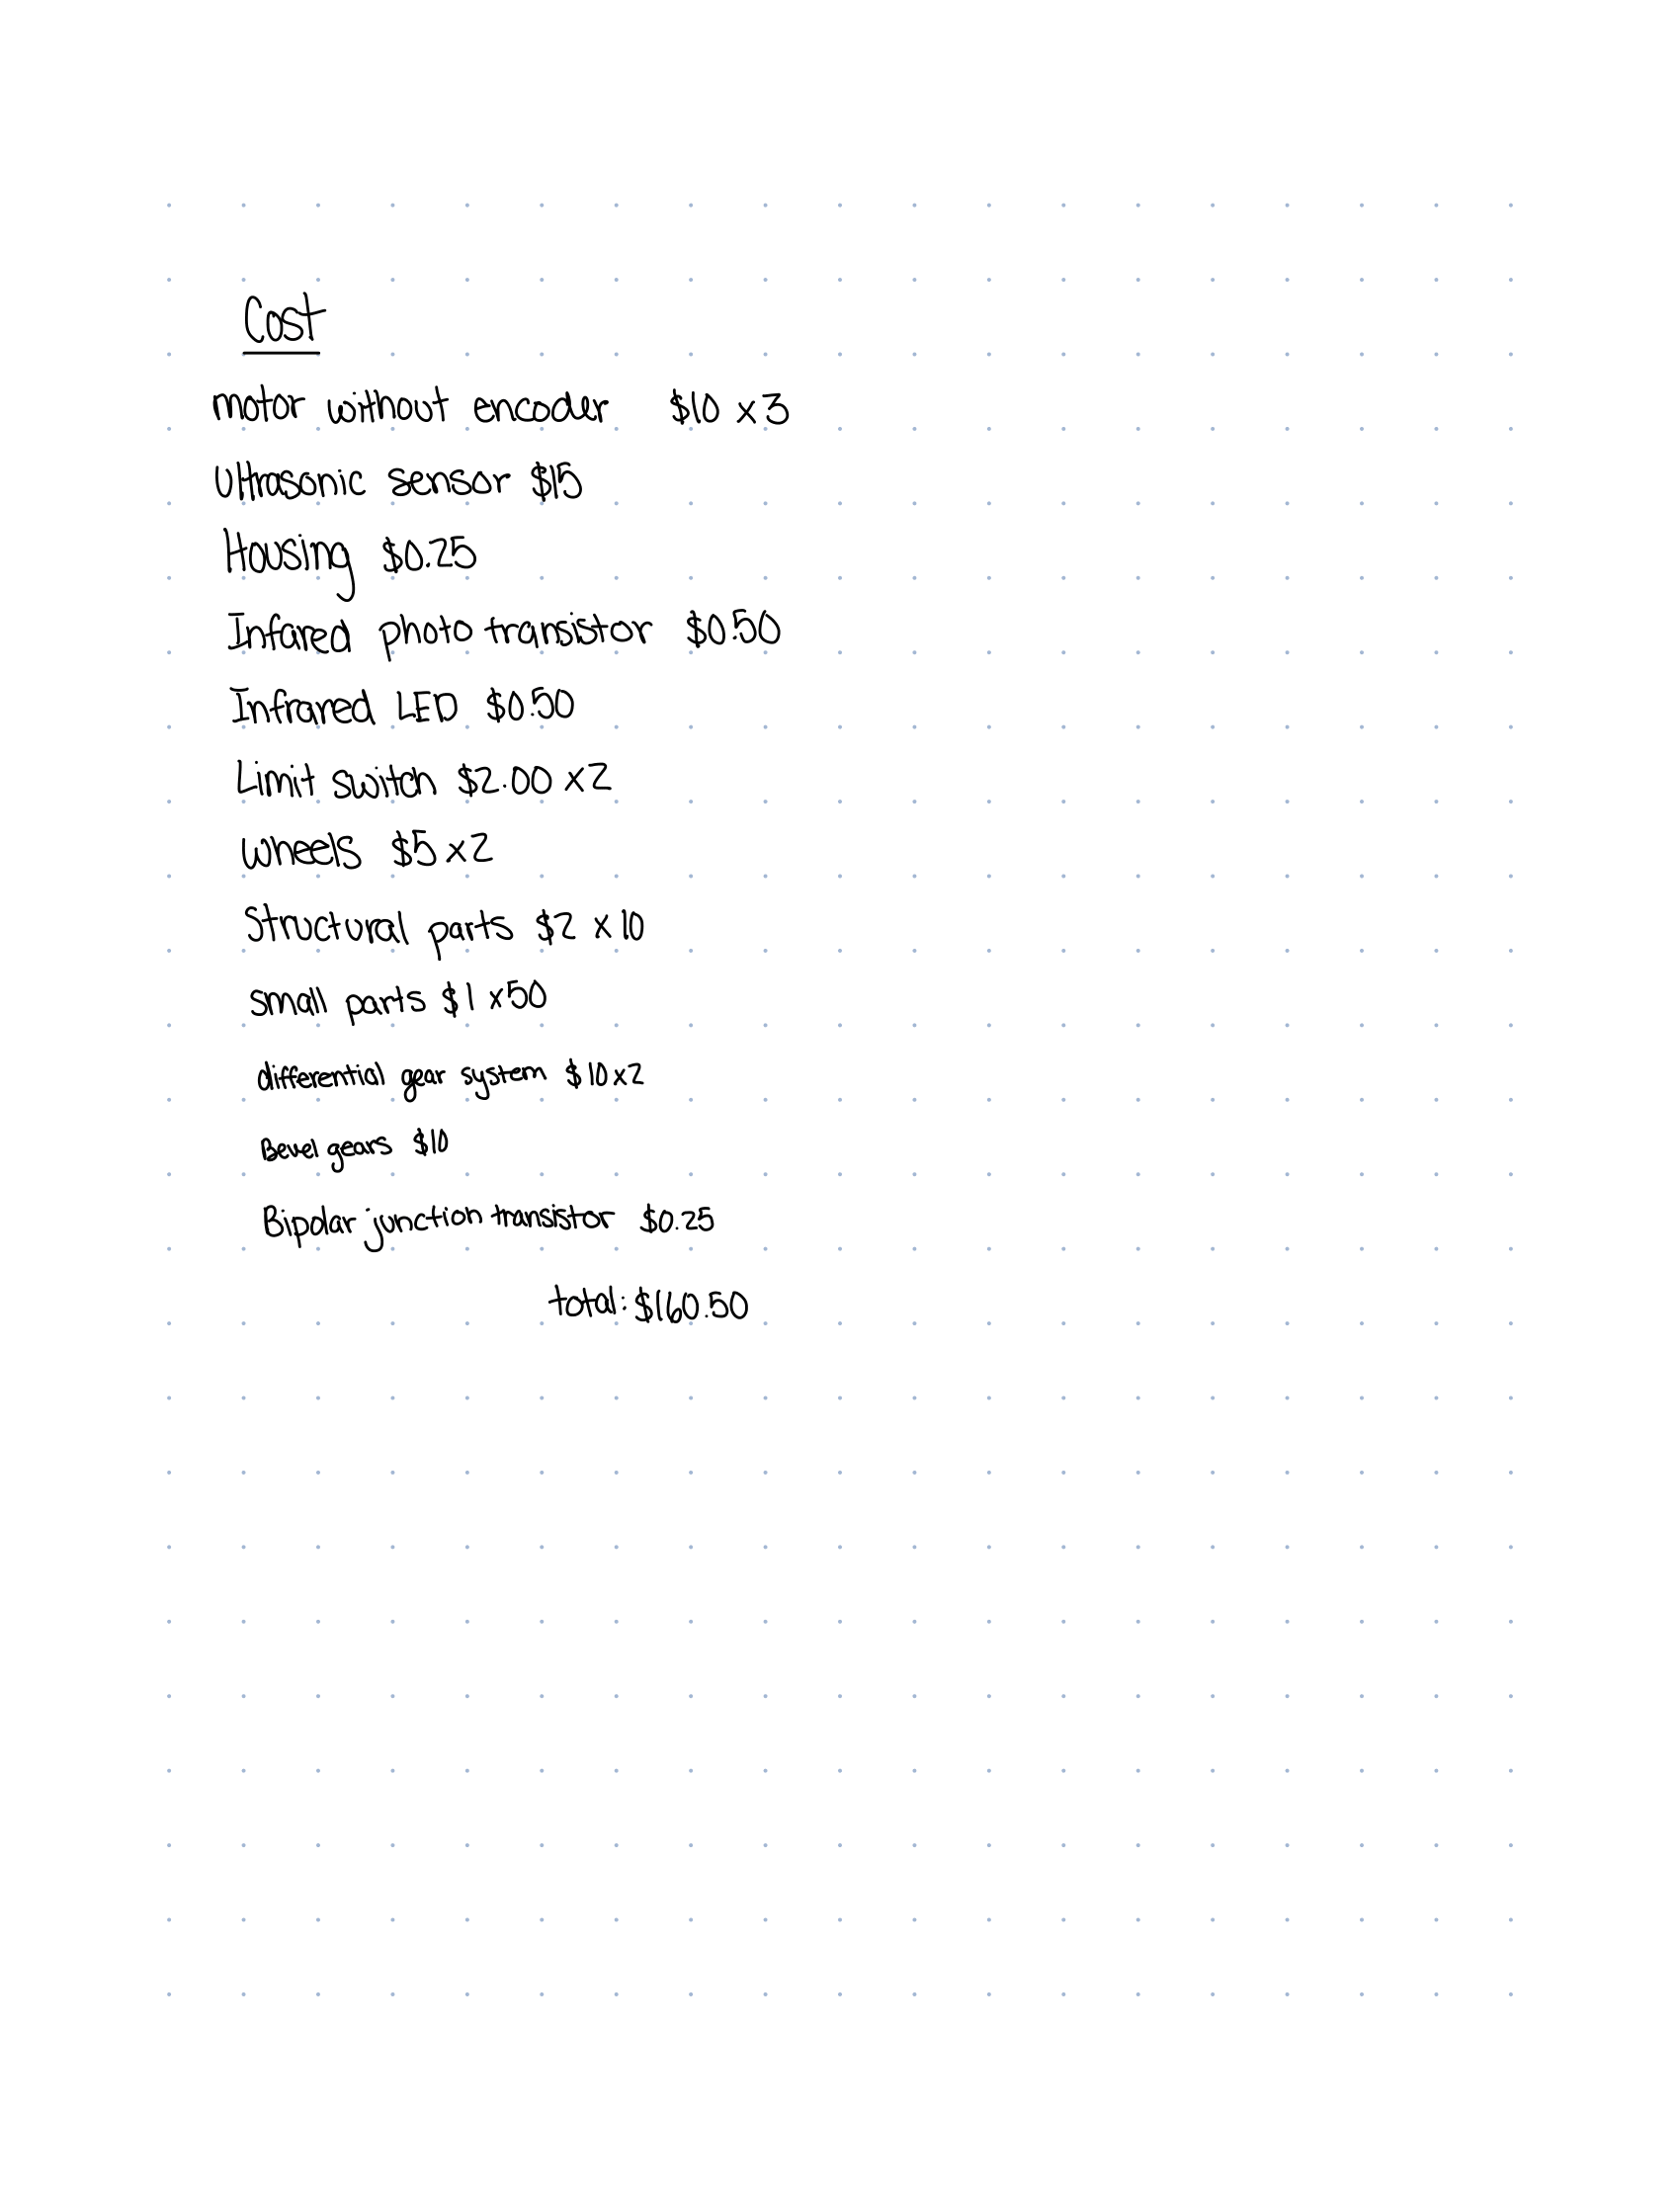 Cost
motor without encoder $10 x3
Ultrasonic sensor $15
Housing $0.25
Infared photo transistor $0.50
Infrared LED $0.50
Limit switch $2.00 x2
wheels $5 x2
Structural parts $2 x10
small parts $1 x50
differential gear system $10x2
Bevel gears $10
Bipolar junction transistor $0.25
total: $160.50